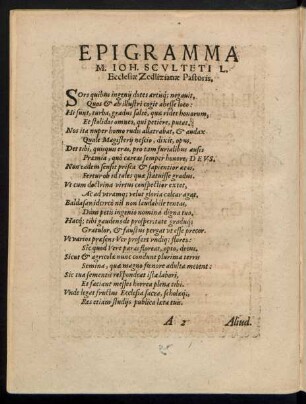 EPIGRAMMA
M. IOH. SCVLTETI L.
Ecclesiæ Zedlizianæ Pastoris.
Sors quibus ingenij dotes artiumq; negavit,
Quos & ab illustri cogit abesse loco:
Hi sunt, turba, gradus solet, qua ridet honorum,
Et stolidos omnes, qui petiere, putat.
Nos ita nuper homo rudis allatrabat, & audax
Quale Magisterij nescio, dixit, opus.
Det tibi, quisquis eras, pro tam furialibus ausis
Præmia, quò careas semper honore, DEVS.
Non eadem sensit prisca & sapientior ætas,
Fertur ob id tales quæ statuisse gradus.
Vt cum doctrina virtus conspectior extet,
Ac ad utramq; velut gloria calcar agat.
Baldasari dederit nil non laudabile
Dum petit ingenio nomina digna suo,
Hacq; tibi gaudens de prosperitate gradus
Gratulor, & faustus pergat ut esse precor.
Vt varios præsens Ver profert undiq; flores:
Sic quod Vere paras floreat, opto, decus.
Sicut & agricolæ nunc condunt plurima terris
Semina, quæ magno fœnore adulta metent:
Sic tua sementis respondeat ista labori,
Et faciant messes horrea plena tibi.
Vnde legat fructus Ecclesia sacra, scholæq;,
Res etiam studijs publica læta tuis.
A 2 Aliud.